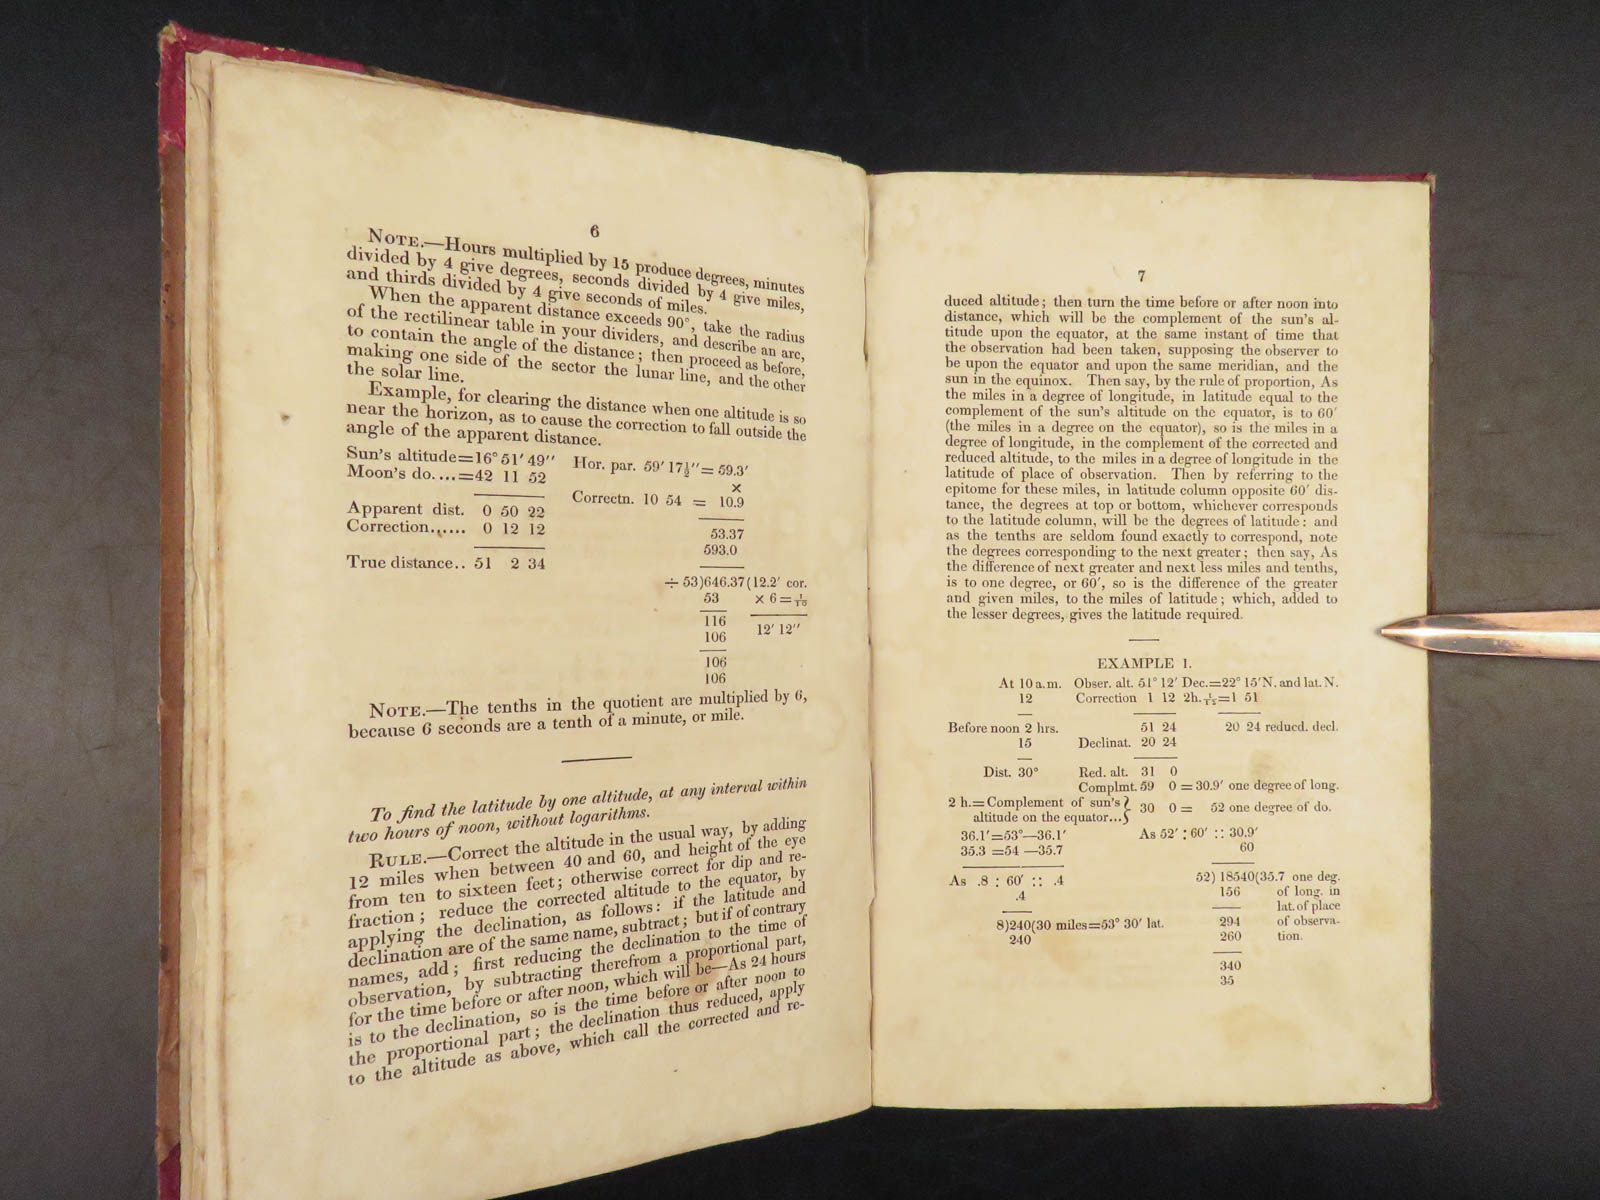 6
NOTE.—Hours multiplied by 15 produce degrees, minutes
divided by 4 give degrees, seconds divided by 4 give miles,
and thirds divided by 4 give seconds of miles.
When the apparent distance exceeds 90°, take the radius
of the rectilinear table in your dividers, and describe an arc,
to contain the angle of the distance; then proceed as before,
making one side of the sector the lunar line, and the other
the solar line.
Example, for clearing the distance when one altitude is so
near the horizon, as to cause the correction to fall outside the
angle of the apparent distance.
Sun's altitude=16° 51′ 49″ Hor. par. 59′ 17½″= 59.3′
Moon's do....=42 11 52 ×
Correctn. 10 54 = 10.9
Apparent dist. 0 50 22
Correction...... 0 12 12 53.37
593.0
True distance.. 51 2 34
÷ 53)646.37(12.2′ cor.
53 × 6 = 1/10
116 12′ 12″
106
106
106
NOTE.—The tenths in the quotient are multiplied by 6,
because 6 seconds are a tenth of a minute, or mile.
To find the latitude by one altitude, at any interval within
two hours of noon, without logarithms.
RULE.—Correct the altitude in the usual way, by adding
12 miles when between 40 and 60, and height of the eye
from ten to sixteen feet; otherwise correct for dip and re-
fraction; reduce the corrected altitude to the equator, by
applying the declination, as follows: if the latitude and
declination are of the same name, subtract; but if of contrary
names, add; first reducing the declination to the time of
observation, by subtracting therefrom a proportional part,
for the time before or after noon, which will be—As 24 hours
is to the declination, so is the time before or after noon to
the proportional part; the declination thus reduced, apply
to the altitude as above, which call the corrected and re-
7
duced altitude; then turn the time before or after noon into
distance, which will be the complement of the sun's al-
titude upon the equator, at the same instant of time that
the observation had been taken, supposing the observer to
be upon the equator and upon the same meridian, and the
sun in the equinox. Then say, by the rule of proportion, As
the miles in a degree of longitude, in latitude equal to the
complement of the sun's altitude on the equator, is to 60′
(the miles in a degree on the equator), so is the miles in a
degree of longitude, in the complement of the corrected and
reduced altitude, to the miles in a degree of longitude in the
latitude of place of observation. Then by referring to the
epitome for these miles, in latitude column opposite 60′ dis-
tance, the degrees at top or bottom, whichever corresponds
to the latitude column, will be the degrees of latitude: and
as the tenths are seldom found exactly to correspond, note
the degrees corresponding to the next greater; then say, As
the difference of next greater and next less miles and tenths,
is to one degree, or 60′, so is the difference of the greater
and given miles, to the miles of latitude; which, added to
the lesser degrees, gives the latitude required.
EXAMPLE I.
At 10 a.m. Obser. alt. 51° 12′ Dec.=22° 15′N. and lat. N.
12 Correction 1 12 2h. 1/12=1 51
Before noon 2 hrs. 51 24 20 24 reducd. decl.
15 Declinat. 20 24
Dist. 30° Red. alt. 31 0
Complmt. 59 0 = 30.9′ one degree of long.
2 h.=Complement of sun's } 30 0 = 52 one degree of do.
altitude on the equator...}
36.1′=53°—36.1′ As 52′ : 60′ :: 30.9′
35.3 =54 —35.7 60
As .8 : 60′ :: .4 52) 18540(35.7 one deg.
.4 156 of long. in
lat. of place
8)240(30 miles=53° 30′ lat. 294 of observa-
240 260 tion.
340
35